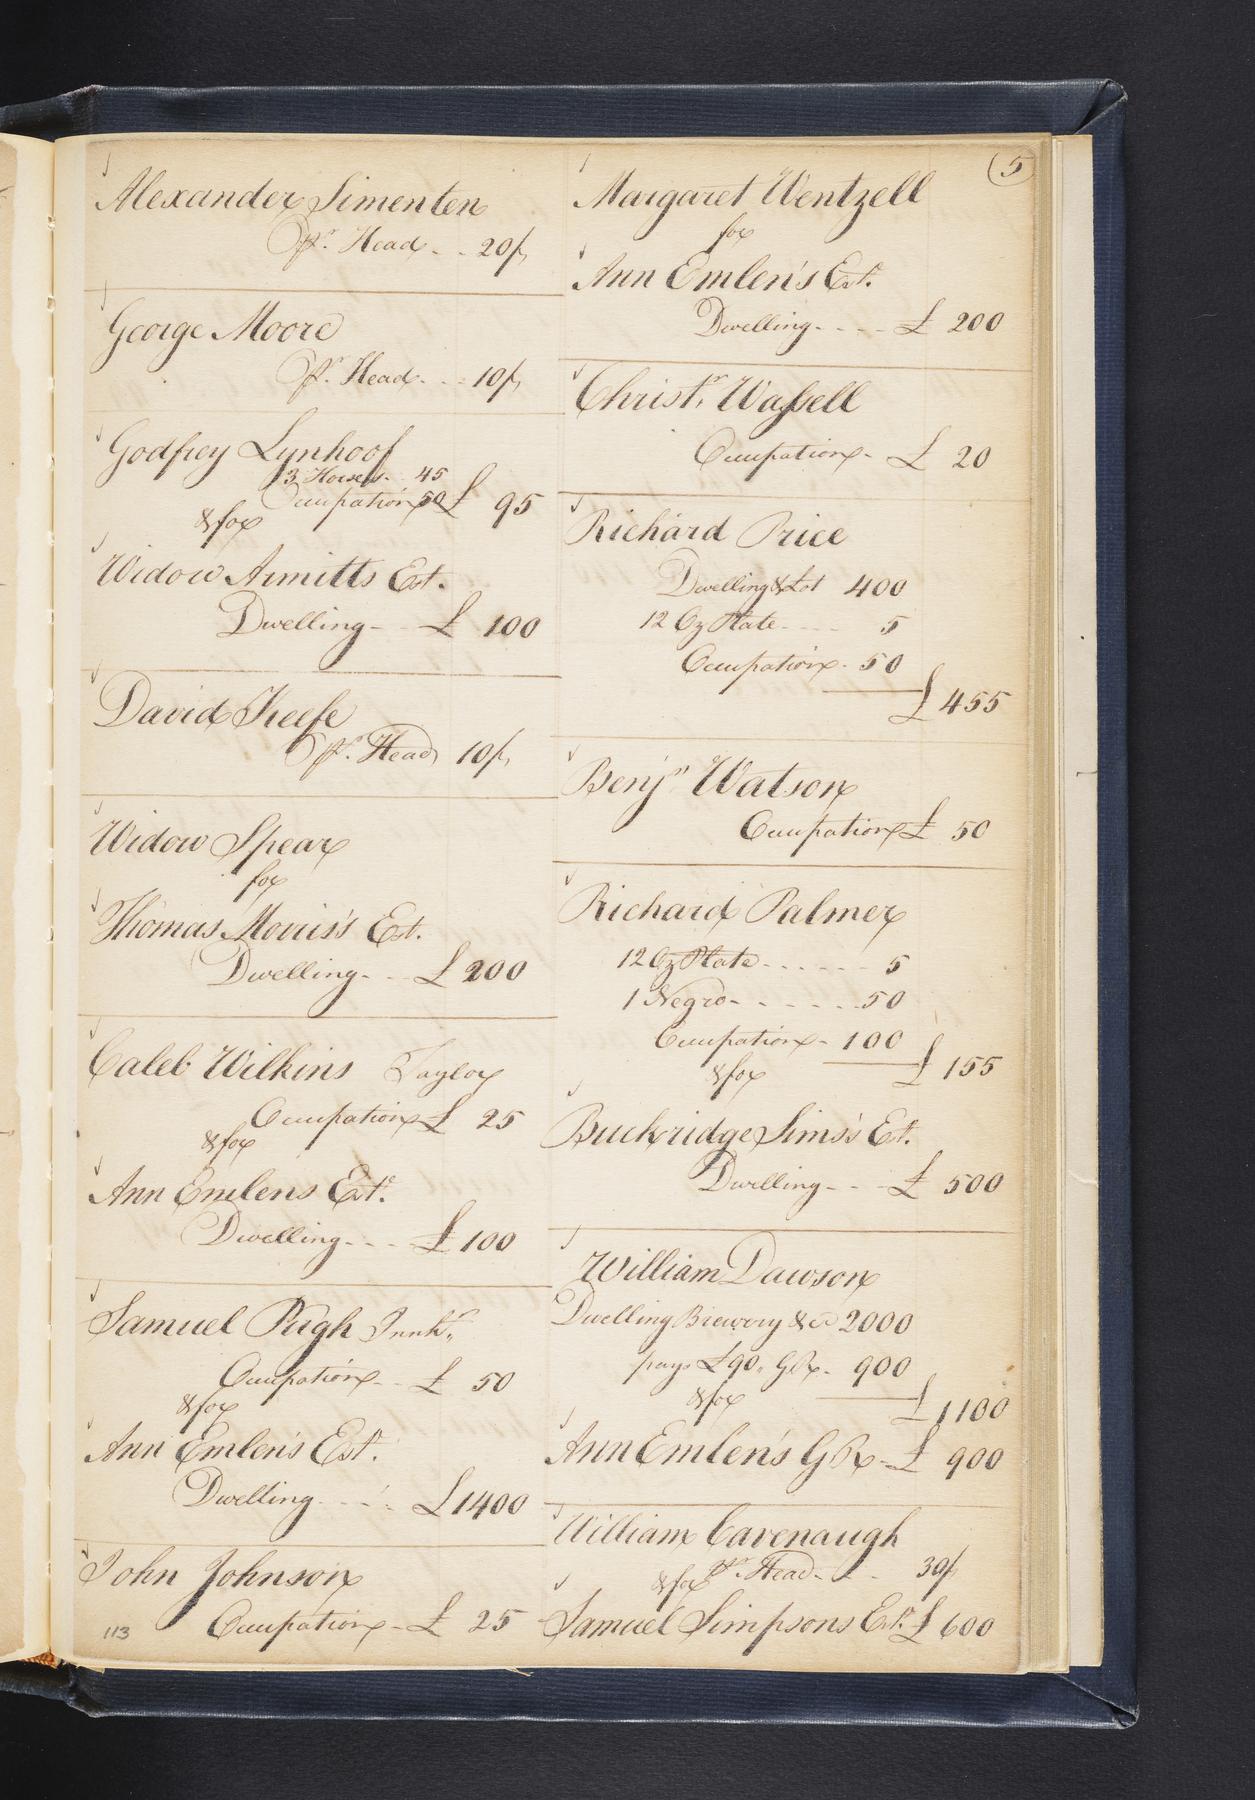 5
Alexander Simenten
pr. Head - - 20/,
George Moore
pr. Head - - 10/,
Godfrey Lynhoof
3 Horses - 45
Occupation 50 £ 95
& for
Widow Armitts Est.
Dwelling - - £ 100
David Keefe
pr. Head 10/,
Widow Spear
for
Thomas Morris's Est.
Dwelling - - £ 200
Caleb Wilkins Taylor
Occupation £ 25
& for
Ann Emlens Est.
Dwelling - - - £ 100
Samuel Pugh Innkr.
Occupation - - £ 50
& for
Ann Emlen's Est.
Dwelling - - - £ 1400
John Johnson
Occupation - £ 25
113
Margaret Wentzell
for
Ann Emlen's Est.
Dwelling - - - - £ 200
Christr. Wassell
Occupation - £ 20
Richard Price
Dwelling & Lot 400
12 Oz Plate - - - - 5
Occupation - 50
£ 455
Benjn Watson
Occupation £ 50
Richard Palmer
12 Oz Plate - - - - - - 5
1 Negro - - - - - - 50
Occupation - 100
& for £ 155
Buckridge Sims's Est.
Dwelling - - - £ 500
William Dawson
Dwelling Brewery &c 2000
pays £90. G R - 900
& for £ 1100
Ann Emlen's G R - £ 900
William Cavenaugh
pr. Head - - - 30/,
& for
Samuel Simpsons Est. £ 600